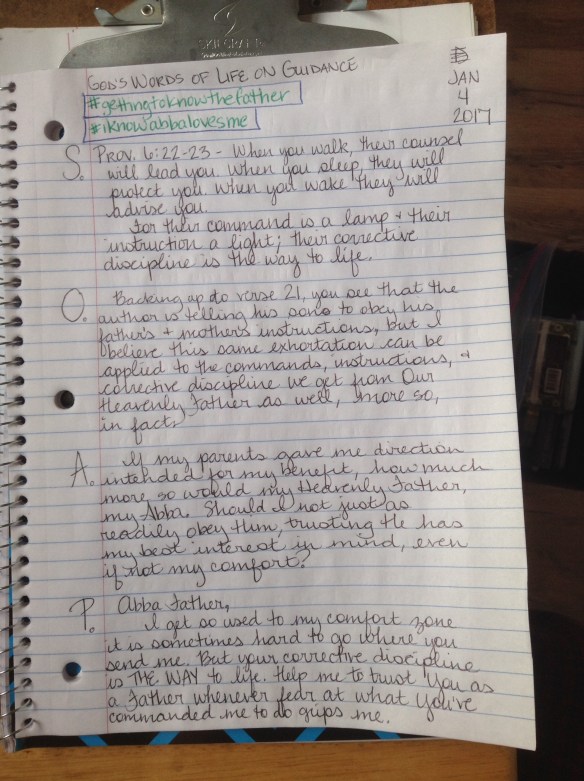 SKILCRAFT
GOD'S WORDS OF LIFE ON GUIDANCE
#gettingtoknowthefather
#iknowabbalovesme
JAN
4
2017
S. PROV. 6:22-23 - When you walk, their counsel
will lead you. When you sleep, they will
protect you. When you wake they will
advise you.
For their command is a lamp + their
instruction a light; their corrective
discipline is the way to life.
O. Backing up to verse 21, you see that the
author is telling his sons to obey his
father's + mother's instructions, but I
believe this same exhortation can be
applied to the commands, instructions, +
corrective discipline we get from Our
Heavenly Father as well, more so,
in fact.
A. If my parents gave me direction
intended for my benefit, how much
more so would my Heavenly Father,
my Abba. Should I not just as
readily obey Him, trusting He has
my best interest in mind, even
if not my comfort?
P. Abba Father,
I get so used to my comfort zone
it is sometimes hard to go where you
send me. But your corrective discipline
is THE WAY to life. Help me to trust You as
a Father whenever fear at what You've
commanded me to do grips me.